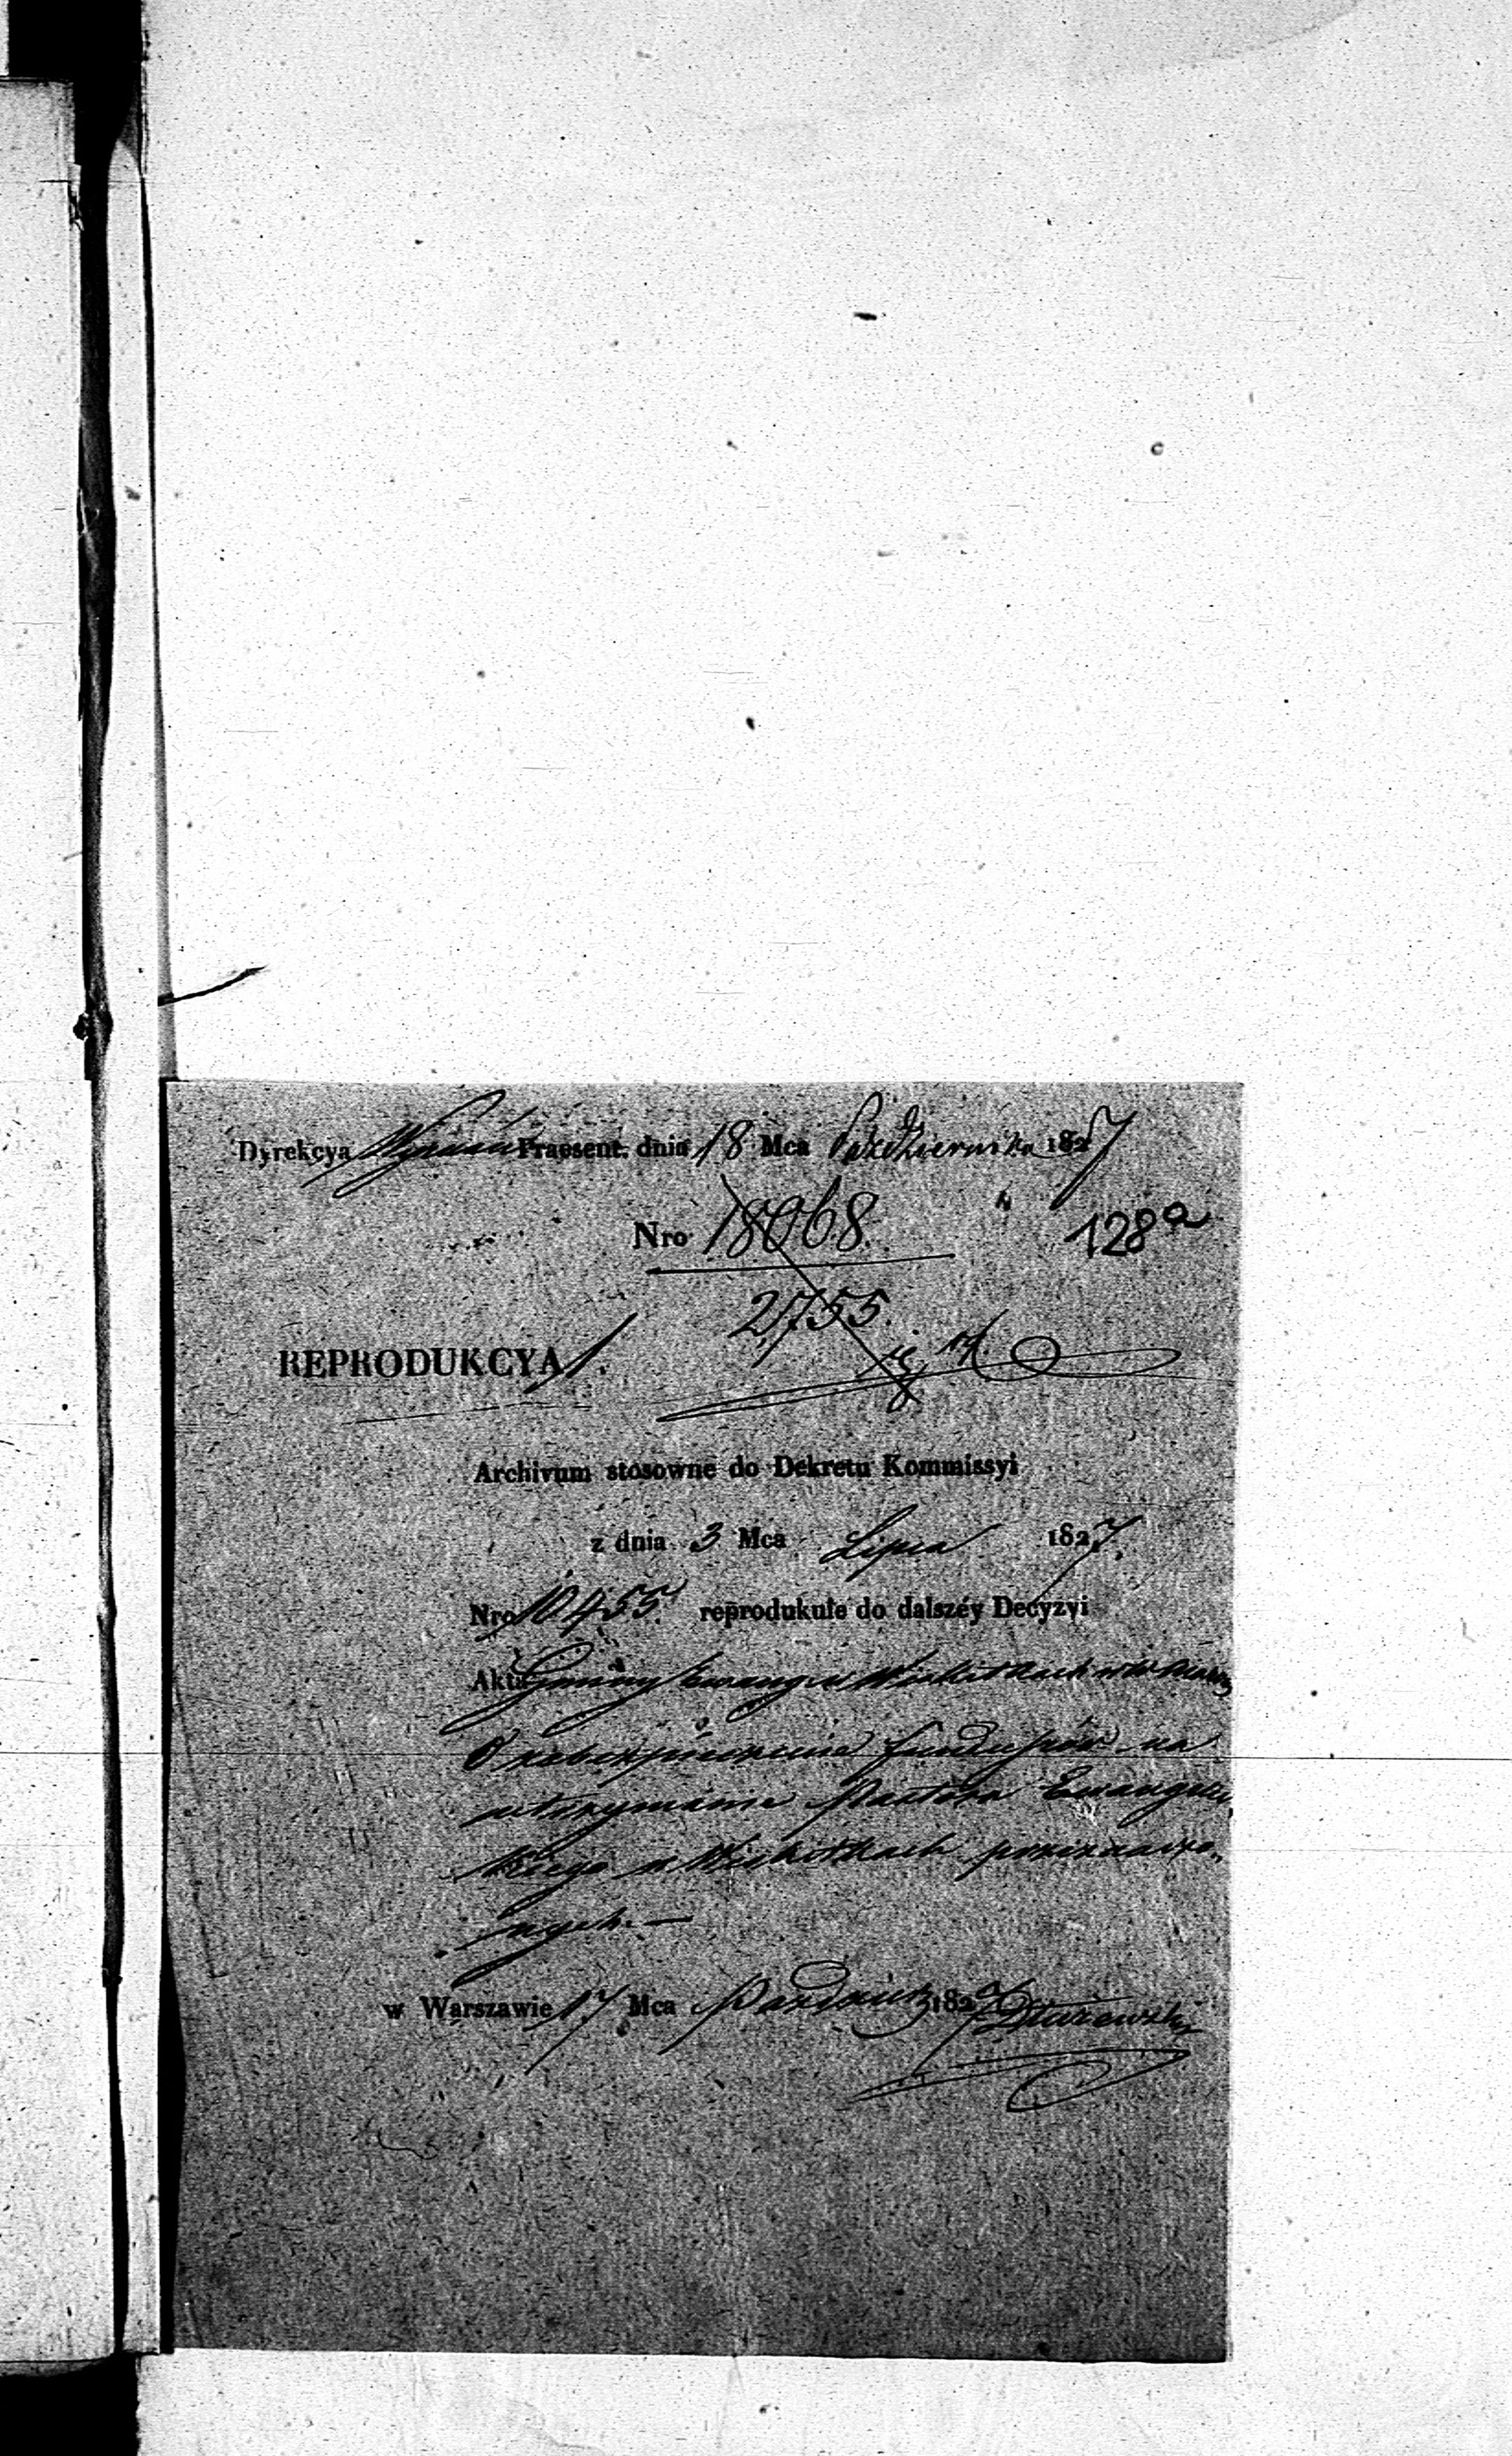 Dyrekcya Wyznań Praesent. dnia 18 Mca Października 1827
Nro 18068.
128a
2,755.
REPRODUKCYA 1.
Archivum stosowne do Dekretu Kommissyi
z dnia 3 Mca Lipca 1827.
Nro 10455. reprodukuie do dalszéy Decyzyi
Akta Gminy Ewang. w Wiskitkach
O zabezpieczenie funduszów na
utrzymanie Pastora Ewangeli
ckiego w Wiskitkach przeznaczo
nych. —
w Warszawie 17 Mca Paździer 1827